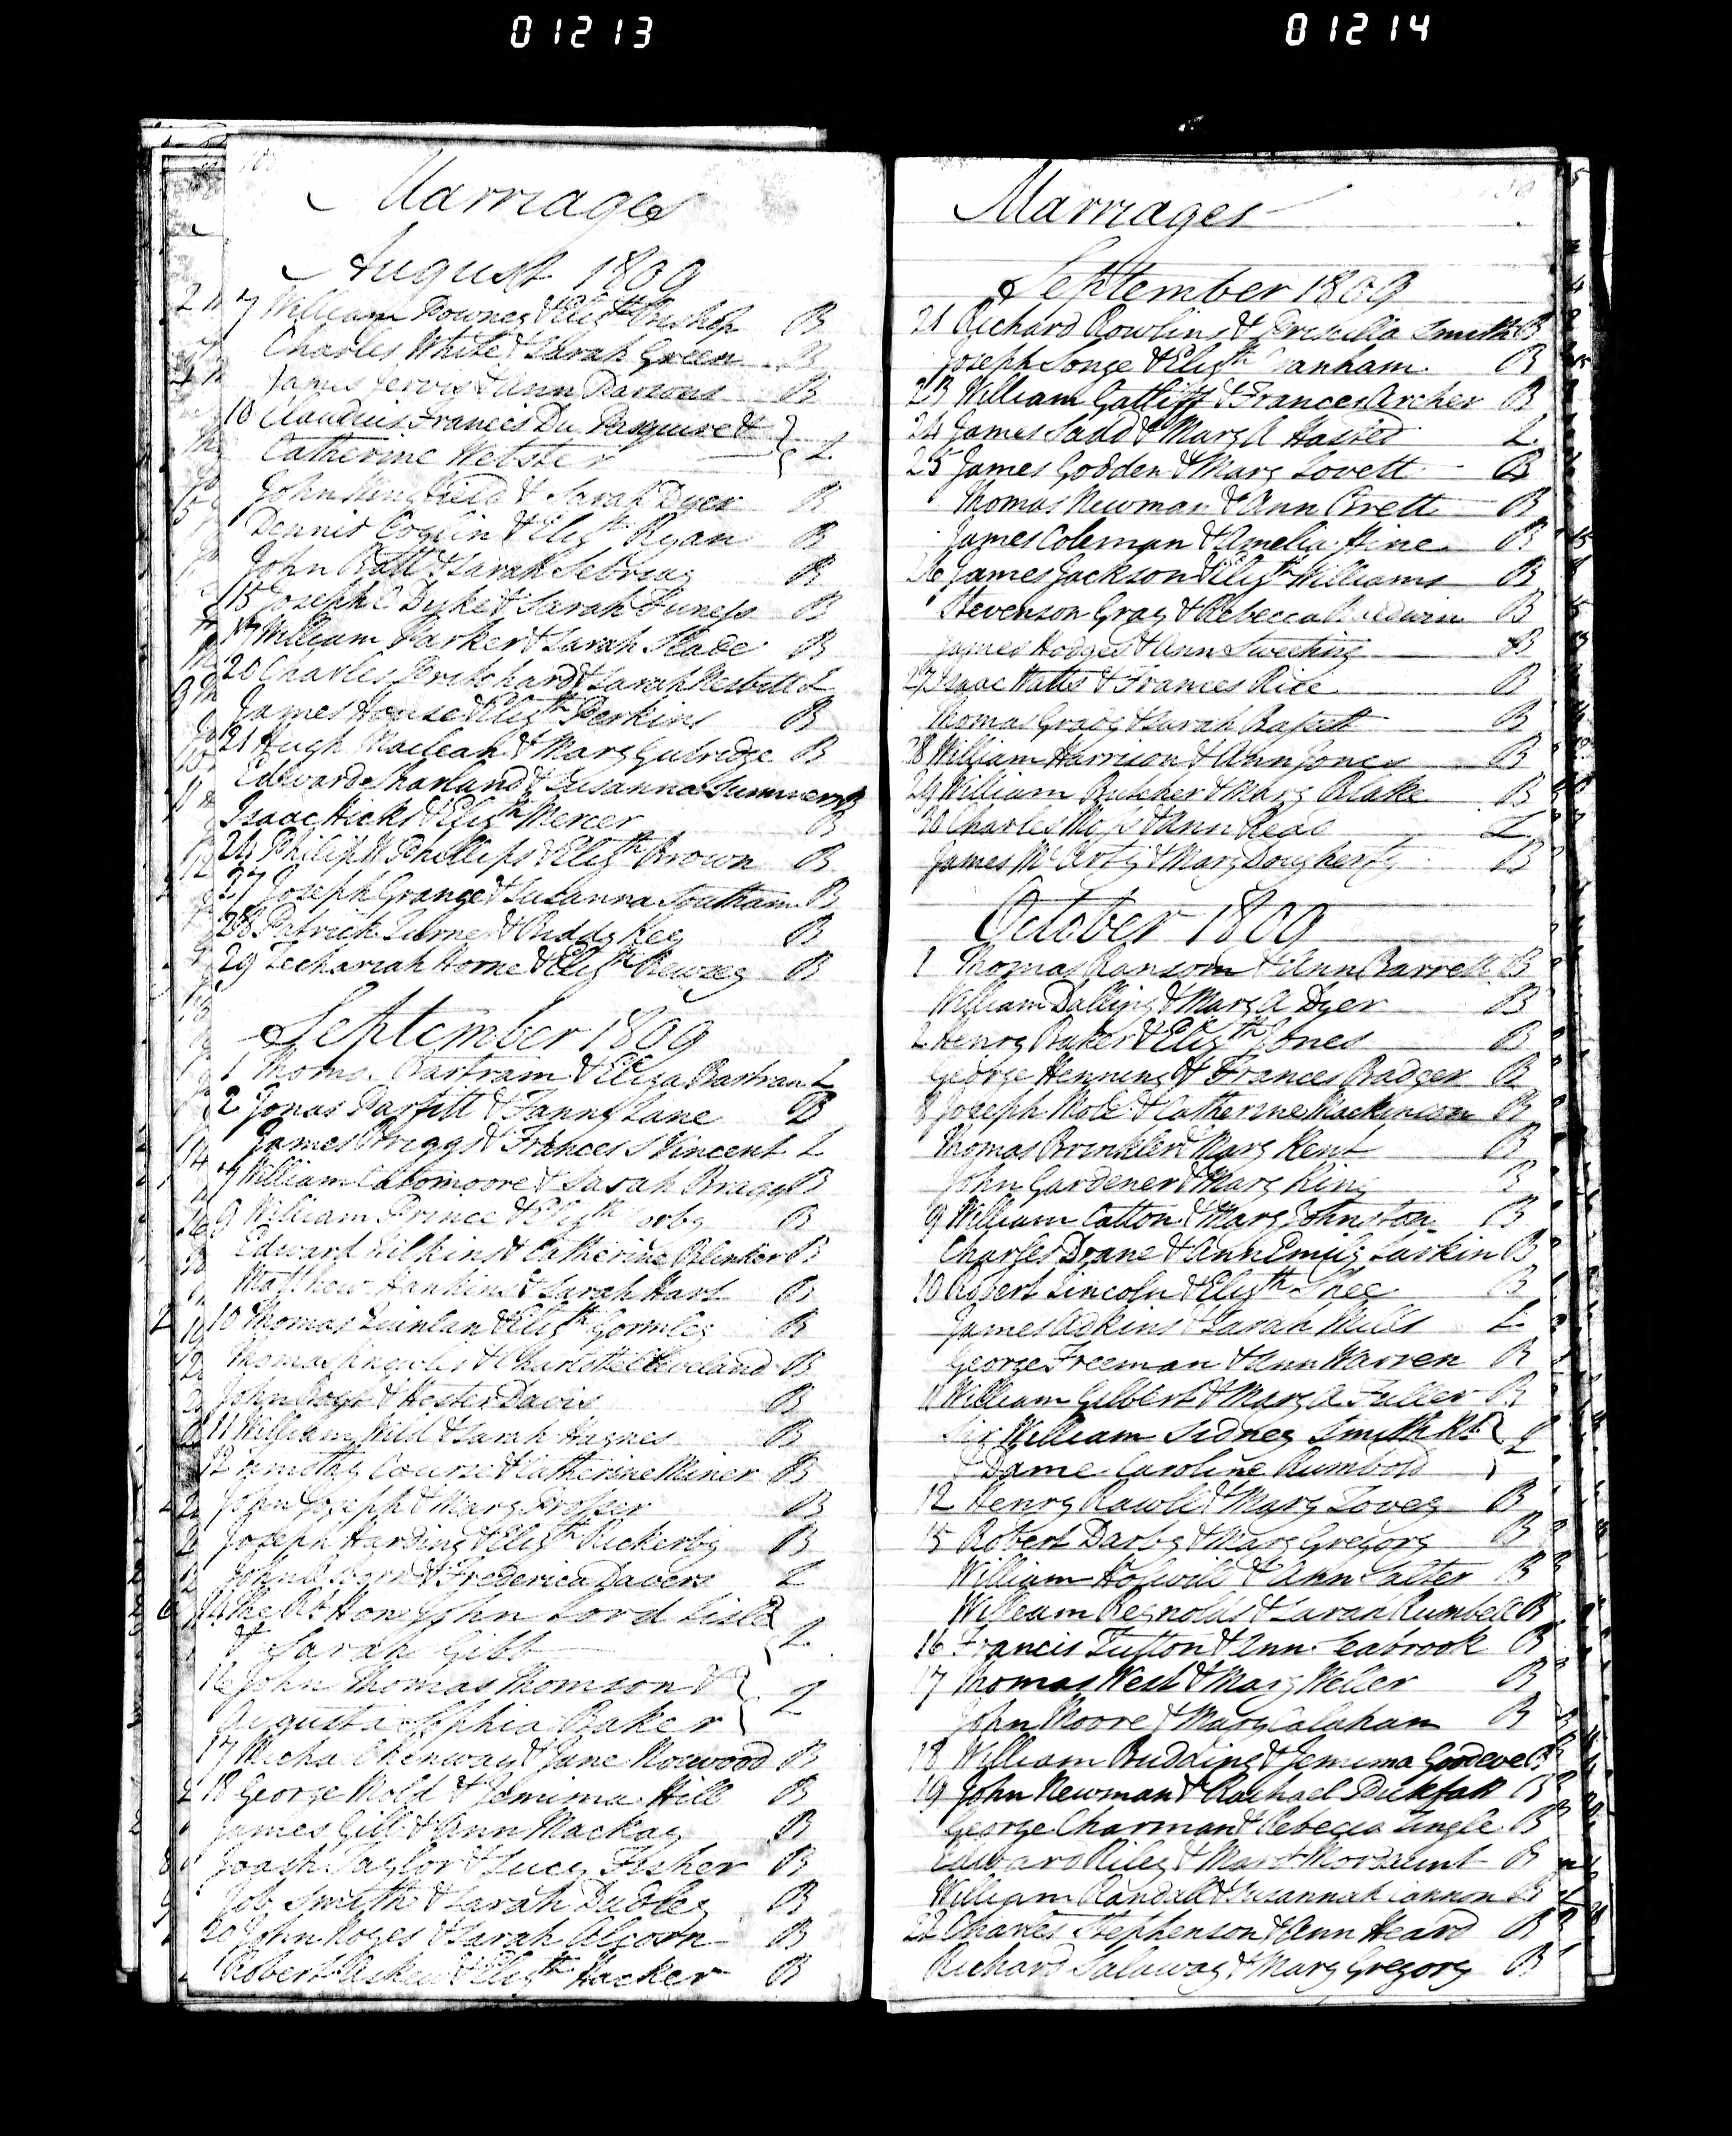 01213
01214
Marriages
August 1809
7 William Downey & Eliz.th Bishop B
Charles White & Sarah Green B
James Jervis & Ann Parsons B
10 Claudius Francis Du Pasquire &
Catherine Webster L
John Wingfield & Sarah Dyer B
Dennis Coglin & Eliz.th Ryan B
John Ratt & Sarah Sebreay B
15 Joseph C Dyke & Sarah Funess B
17 William Parker & Sarah Slade B
20 Charles Pritchard & Sarah Nesbitt L
James House & Eliz.th Perkins B
21 Hugh Macleah & Mary Gutredge B
Edward Sharland & Susanna Summers B
Isaac Hicks & Eliz.th Mercer B
24 Philip W Phillips & Eliz.th Brown B
27 Joseph Grange & Susanna Southam B
28 Patrick & Biddy Key B
29 Zechariah Horne & Eliz.th B
September 1809
1 Thoms. Bartram & Eliza Bartram L
2 Jonas Parfitt & Fanny Lane B
James Briggs & Frances S Vincent L
7 William & Sarah Bragg B
9 William Prince & Eliz.th B
Edward Wilkins & Catherine Blinker B
Matthew Hankins & Sarah Hart B
10 Thomas Quinlan & Eliz.th Gormley B
Thomas & Charlotte Cleveland B
John & Hester Davis B
11 William Wild & Sarah Haynes B
12 Timothy Course & Catherine Miner B
John Joseph & Mary Prosser B
Joseph Harding & Eliz.th Rickerby B
John & Frederica Davers L
14 The Rt Hon John Lord Lisle
& Sarah Gibb L
16 John Thomas Thomson &
Augusta Sophia Baker L
17 Michael Kenway & Jane Norwood B
18 George Mold & Jemima Hill B
James Gill & Ann Mackay B
Joash Taylor & Lucy Fisher B
Job Smith & Sarah Dudley B
20 John Noyes & Sarah Alcorn B
Robert & Eliz.th Hacker B
Marriages
September 1809
21 Richard Rowlins & Priscilla Smith B
Joseph Songe & Eliz.th B
23 William Gatliff & Frances Archer B
24 James Sadd & Mary A Hasted L
25 James Godden & Mary Lovett B
Thomas Newman & Ann Brett B
James Coleman & Amelia Hine B
26 James Jackson & Eliz.th Williams B
Stevenson Gray & Rebecca B
James Hodges & Ann Sweeting B
27 Isaac Watts & Frances Rice B
Thomas Grady & Sarah Bassett B
28 William Harrison & Ann Jones B
29 William Butcher & Mary Blake B
30 Charles Moss & Ann Read L
James McArty & Mary Dougherty B
October 1809
1 Thomas Ransom & Ann Barrett B
William Dalling & Mary A Dyer B
2 Henry Baker & Eliz.th Jones B
George Henning & Frances Badger B
8 Joseph Mole & Catherine Mackinnon B
Thomas Brinkler & Mary Kent B
John Gardener & Mary King B
9 William Catton & Mary Johnston B
Charles Drane & Ann Emily Larkin B
10 Robert Lincoln & Eliz.th Snee B
James Adkins & Sarah Mills L
George Freeman & Ann Warren B
11 William Gilbert & Mary A Fuller B
Sir William Sidney Smith Kt.
& Dame Caroline Rumbold L
12 Henry Rawle & Mary Lovey B
15 Robert Darby & Mary Gregory B
William & Ann Salter B
William Reynolds & Sarah Rumbell B
16 Francis Tufton & Ann Seabrook B
17 Thomas West & Mary Weller B
John Moore & Mary Calahan B
18 William Budding & Jemima Goodeve B
19 John Newman & Rachael Duckfat B
George Charman & Rebecca Lingle B
Edward Riley & Mary Mordaunt B
William Randall & Susannah Cannon B
22 Charles Stephenson & Ann Heard B
Richard Salaway & Mary Gregory B